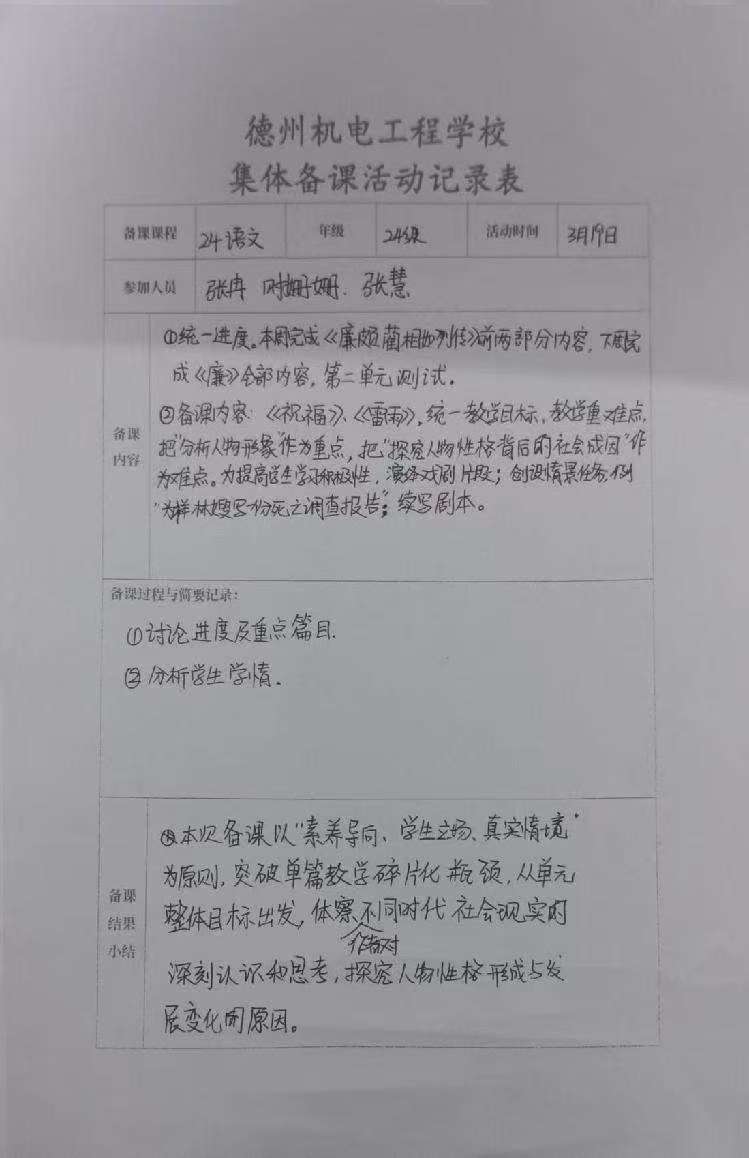 德州机电工程学校
集体备课活动记录表
备课课程 24语文 年级 24级 活动时间 3月19日
参加人员 张冉 时姗姗. 张慧
备课内容
①统一进度。本周完成《廉颇蔺相如列传》前两部分内容,下周完
成《廉》全部内容,第二单元测试.
②备课内容:《祝福》、《雷雨》,统一教学目标,教学重难点,
把“分析人物形象”作为重点,把“探究人物性格背后的社会成因”作
为难点。为提高学生学习积极性,演绎戏剧片段;创设情景任务,例
“为祥林嫂写一份死亡调查报告”;续写剧本。
备课过程与简要记录:
①讨论进度及重点篇目.
②分析学生学情.
备课结果小结
本次备课以“素养导向、学生立场、真实情境”
为原则,突破单篇教学碎片化瓶颈,从单元
整体目标出发,体察作者对不同时代社会现实的
深刻认识和思考,探究人物性格形成与发
展变化的原因。